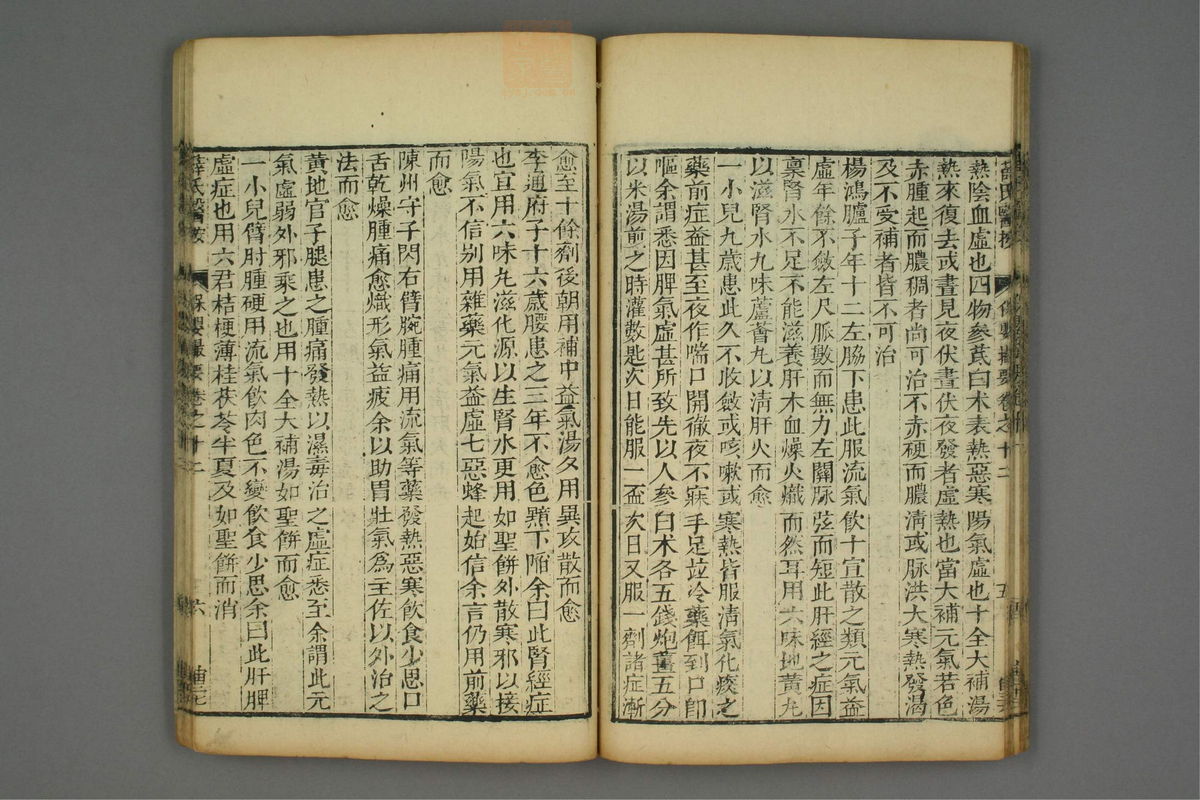 薛氏醫按
保嬰撮要卷之十二
五
熱陰血虛也四物參茋白术表熱惡寒陽氣虛也十全大補湯
熱來復去或晝見夜伏晝伏夜發者虛熱也當大補元氣若色
赤腫起而膿稠者尚可治不赤硬而膿清或脉洪大寒熱發渴
及不受補者皆不可治
楊鴻臚子年十二左脇下患此服流氣飲十宣散之類元氣益
虛年餘不斂左尺脈數而無力左關脉弦而短此肝經之症因
稟腎水不足不能滋養肝木血燥火熾而然耳用六味地黄丸
以滋腎水九味蘆薈丸以清肝火而愈
一小兒九歲患此久不收斂或咳嗽或寒熱皆服清氣化痰之
藥前症益甚至夜作喘口開徹夜不寐手足竝冷藥餌到口卽
嘔余謂悉因脾氣虛甚所致先以人參白术各五錢炮薑五分
以米湯煎之時灌數匙次日能服一盃次日又服一劑諸症漸
愈至十餘劑後朝用補中益氣湯夕用異攻散而愈
李通府子十六歲腰患之三年不愈色黯下陷余曰此腎經症
也宜用六味丸滋化源以生腎水更用如聖餅外散寒邪以接
陽氣不信别用雜藥元氣益虛七惡蜂起始信余言仍用前藥
而愈
陳州守子閃右臂腕腫痛用流氣等藥發熱惡寒飲食少思口
舌乾燥腫痛愈熾形氣益疲余以助胃壯氣爲主佐以外治之
法而愈
黄地官子腿患之腫痛發熱以濕毒治之虛症悉至余謂此元
氣虛弱外邪乘之也用十全大補湯如聖餅而愈
一小兒臂肘腫硬用流氣飲肉色不變飲食少思余曰此肝脾
虛症也用六君桔梗薄桂茯苓半夏及如聖餅而消
薛氏醫按
保嬰撮要卷之十二
六